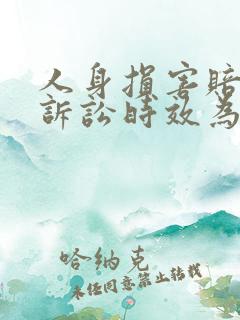 人身損害賠
訴訟時效為
哈納克
未经同意禁止转载